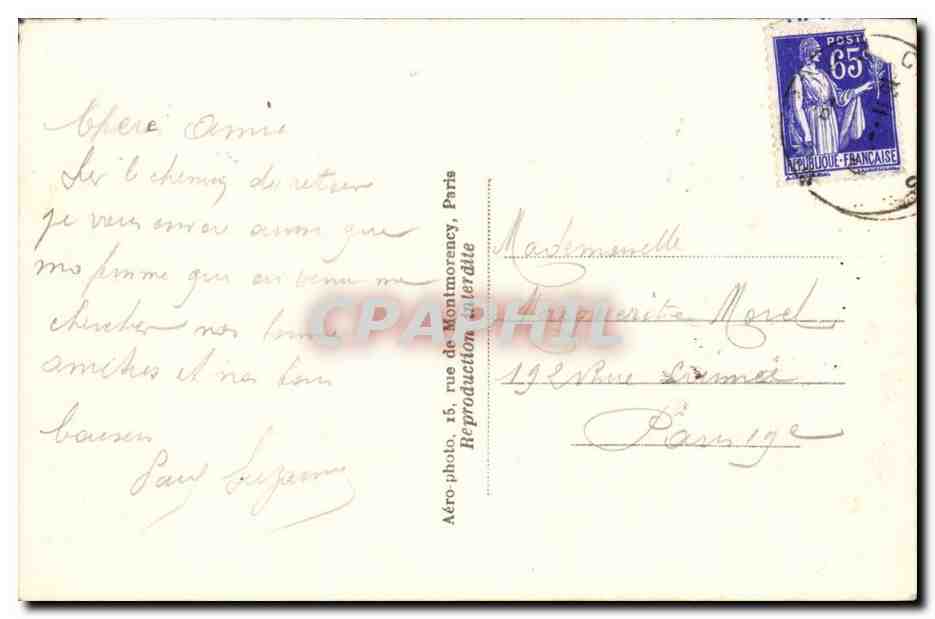 POSTE
65c
RÉPUBLIQUE-FRANÇAISE
Chère Amie
Sur le chemin de retour
je vous envoie ainsi que
ma femme qui venu me
chercher nos bonnes
amitiés et nos bons
baisers
Paul Suzanne
Aéro-photo, 15, rue de Montmorency, Paris
Reproduction interdite
Mademoiselle
Marguerite Morel
192 Rue
Paris 19e
CPAPHIL